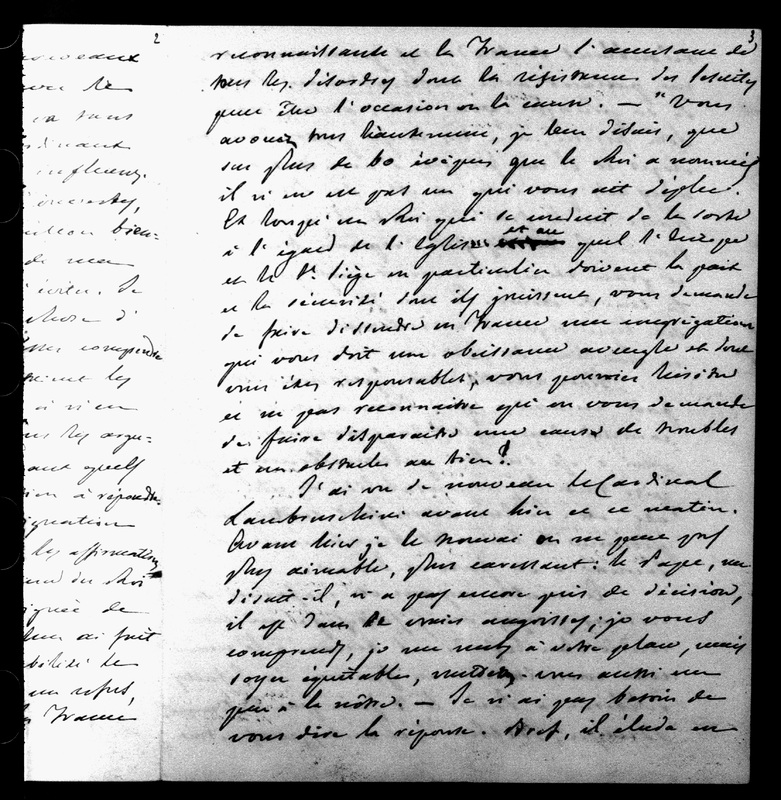 2
rveaux
sans
influence.
bien-
de ma
comprendre
les
à rien
les argu-
quels
à répondre
les affirmations
du Roi
de
ai fait
de
un refus,
la France
3
reconnaissante et la France l'accusant de
tous les désordres dont la résistance des Jésuites
peut être l'occasion ou la cause. — "Vous
avouez tous hautement, je leur disais, que
sur plus de 60 évêques que le Roi a nommés
il n'en est pas un qui vous ait déplu.
Et lorsqu'un Roi qui se conduit de la sorte
à l'égard de l'Eglise et au quel l'Europe
et le St. Siège en particulier doivent la paix
et la sécurité dont ils jouissent, vous demande
de faire dissoudre en France une congrégation
qui vous doit une obéissance aveugle et dont
vous êtes responsables, vous pourriez hésiter
et ne pas reconnaitre qu'on vous demande
de faire disparaitre une cause de troubles
et un obstacle au bien?
J'ai vu de nouveau le Cardinal
Lambruschini avant hier et ce matin.
Avant hier je le trouvai on ne peut pas
plus aimable, plus caressant: le Pape, me
disait-il, n'a pas encore pris de décision,
il est dans de vraies angoisses; je vous
comprends, je me mets à votre place, mais
soyez équitable, mettez-vous aussi un
peu à la nôtre. — Je n'ai pas besoin de
vous dire la réponse. Bref, il élude en